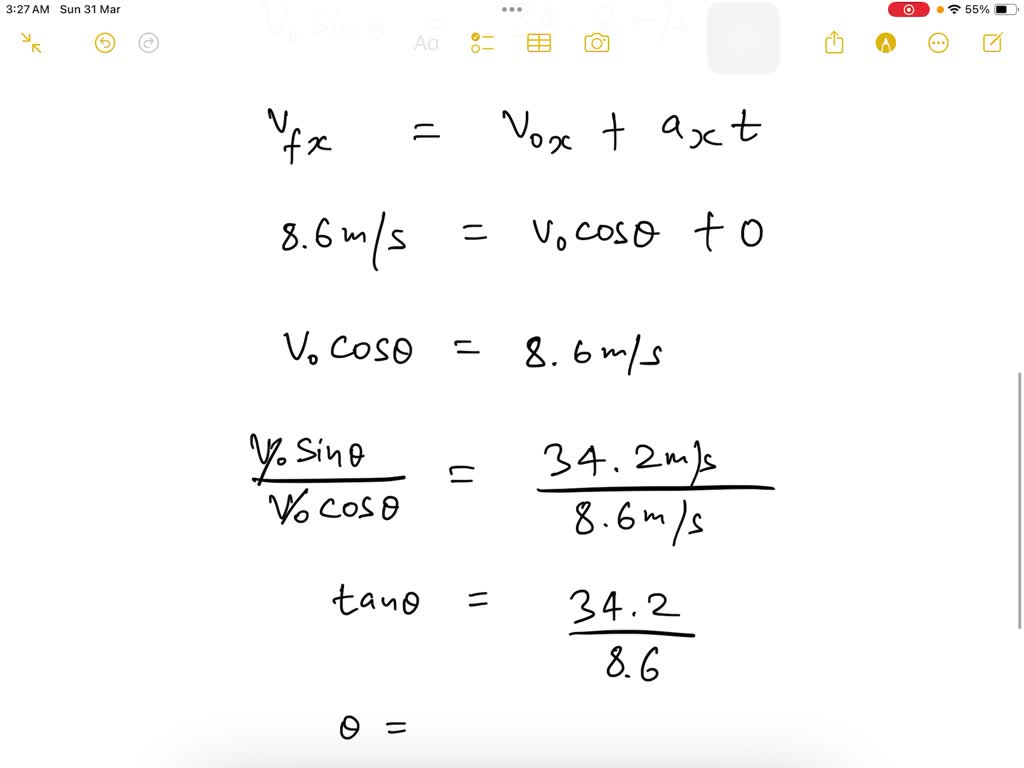 3:27 AM Sun 31 Mar
55%
Aa
V_fx = V_0x + a_x t
8.6 m/s = V_0 cosθ + 0
V_0 cosθ = 8.6 m/s
V_0 sinθ / V_0 cosθ = 34.2 m/s / 8.6 m/s
tanθ = 34.2 / 8.6
θ =